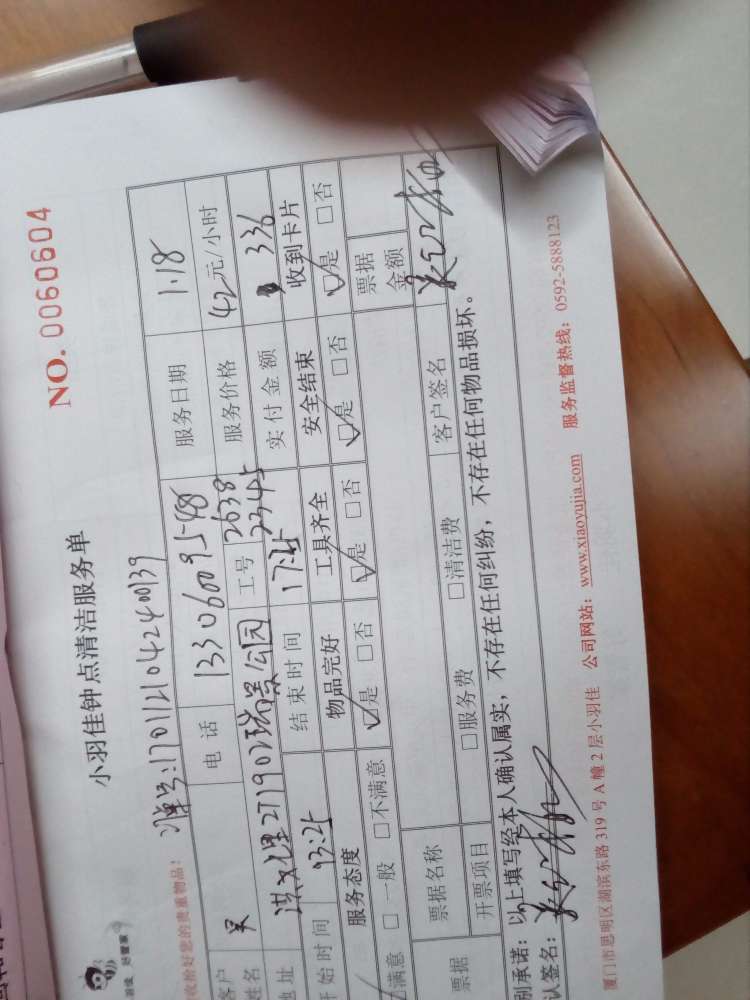 NO. 0060604
小羽佳钟点清洁服务单
单号:170112104240139
收给好您的贵重物品:
客户 姓名 吴 电话 13306009548 服务日期 1.18
地址 洪文七里27 1902 瑞景公园 工号 2638 2345 服务价格 42元/小时
开始时间 13:25 结束时间 17:25 实付金额 336
服务态度 物品完好 工具齐全 安全结束 收到卡片
满意 □一般 □不满意 □是 □否 □是 □否 □是 □否 □是 □否
票据 票据名称 □服务费 □清洁费 票据金额
开票项目 客户签名
别承诺:以上填写经本人确认属实,不存在任何纠纷,不存在任何物品损坏。
认签名:
厦门市思明区湖滨东路 319 号 A 幢 2 层小羽佳 公司网站:www.xiaoyujia.com 服务监督热线:0592-5888123